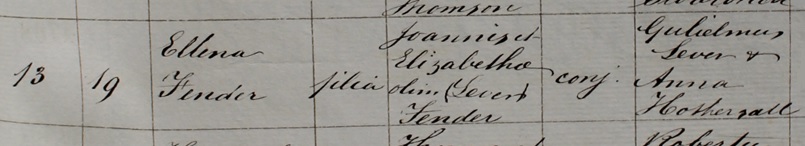 Thomson
13 19 Ellena Fender filia Joannis et Elizabethæ olim (Lever) Fender conj. Gulielmus Lever & Anna Hothersall